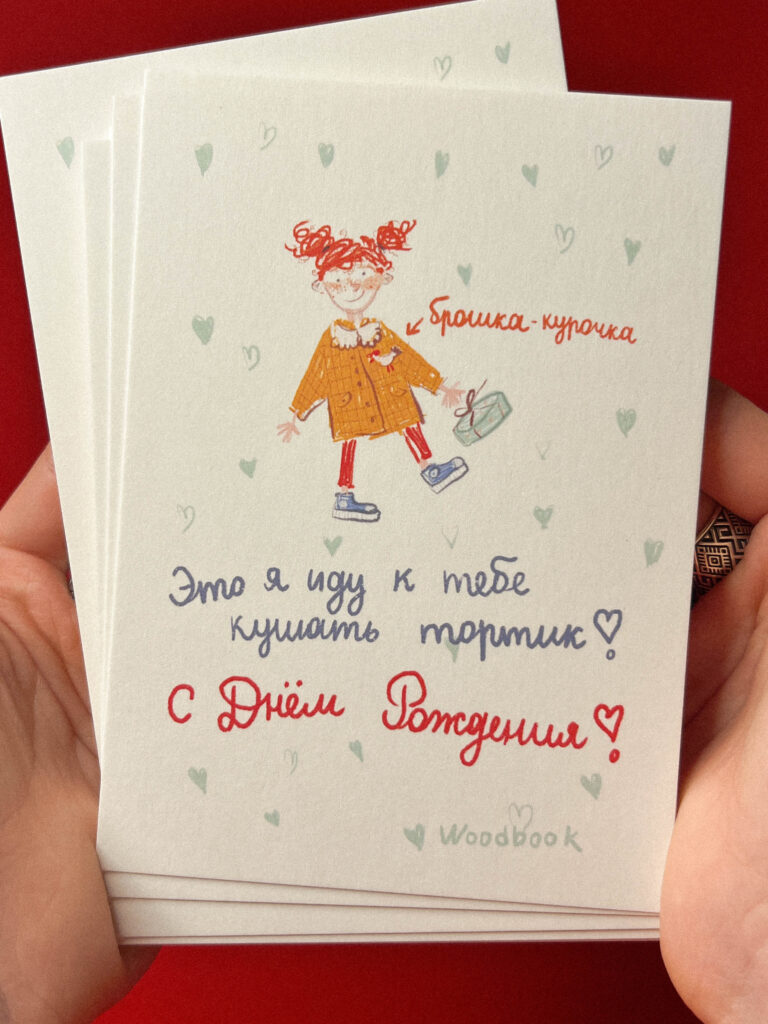 брошка-курочка
Это я иду к тебе
кушать тортик!
С Днём Рождения!
Woodbook